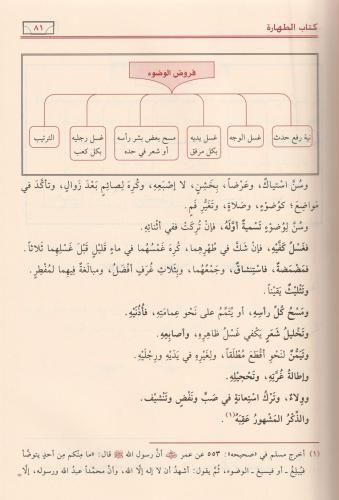 كتاب الطهارة
٨١
فروض الوضوء
نية رفع حدث
غسل الوجه
غسل يديه
بكل مرفق
مسح بعض بشر رأسه
أو شعر في حده
غسل رجليه
بكل كعب
الترتيب
وسُنَّ استياكٌ، وعَرْضاً، بِخَشِنٍ، لا إصْبَعِهِ، وكُرِهَ لِصائِمٍ بَعْدَ زَوالٍ، وتأكَّدَ في
مَواضِعَ؛ كَوُضُوْءٍ، وصَلاةٍ، وتَغَيُّرِ فَمٍ.
وسُنَّ لِوُضُوْءٍ تَسْمِيةٌ أوَّلَهُ، فإنْ تُرِكَتْ ففي أثْنائِهِ.
فغَسْلُ كَفَّيْهِ، فإنْ شَكَّ في طُهْرِهِما، كُرِهَ غَمْسُهُما في ماءٍ قَلِيْلٍ قَبْلَ غَسْلِهِما ثلاثاً.
فمَضْمَضةٌ، فاسْتِنْشاقٌ، وجَمْعُهُما، وبِثَلاثِ غُرَفٍ أفْضَلُ، ومبالَغةٌ فِيهِما لمُفْطِرٍ.
وتَثْلِيْثٌ يَقِيْناً.
ومَسْحُ كُلِّ رأسِهِ، أو يُتَمِّمُ على نَحْوِ عِمامَتِهِ، فأُذُنَيْهِ.
وتَخْلِيلُ شَعَرٍ يَكْفي غَسْلُ ظاهِرِهِ، وأصابِعِهِ.
وتَيَمُّنٌ لنَحْوِ أقْطَعَ مُطْلَقاً، ولِغَيْرِهِ في يَدَيْهِ ورِجْلَيْهِ.
وإطالةُ غُرَّتِهِ، وتَحْجِيْلِهِ.
ووِلاءٌ، وتَرْكُ اسْتِعانةٍ في صَبٍّ ونَفْضٍ وتَنْشِيْفٍ.
والذِّكْرُ المَشْهورُ عَقِبَهُ(١).
(١) أخرج مسلم في «صحيحه»: ٥٥٣ عن عمر ﵁ أنَّ رسول الله ﷺ قال: «ما مِنْكم مِن أحدٍ يتوضَّأ
فيُبْلِغُ ـ أو فيسبغ ـ الوضوء، ثُمَّ يقول: أشهدُ أن لا إله إلَّا الله، وأنَّ محمَّداً عبدُ الله ورسوله، إلَّا